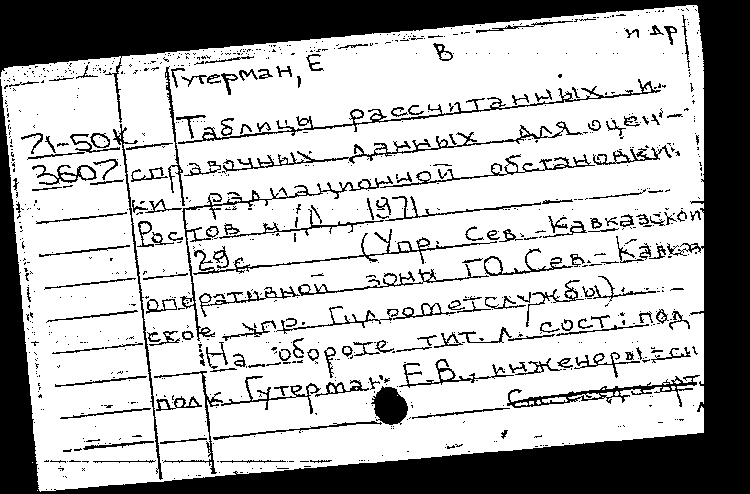 Гутерман, Е В и др
71-50к Таблицы рассчитанных и
3607 справочных данных для оцен-
ки радиационной обстановки.
Ростов н/Д., 1971.
29с (Упр. Сев.-Кавказской
оперативной зоны ГО. Сев.-Кавказ
ское упр. Гидрометслужбы).
На обороте тит. л. сост.: под-
полк. Гутерман Е.В., инженеры-си
См. след. карт.